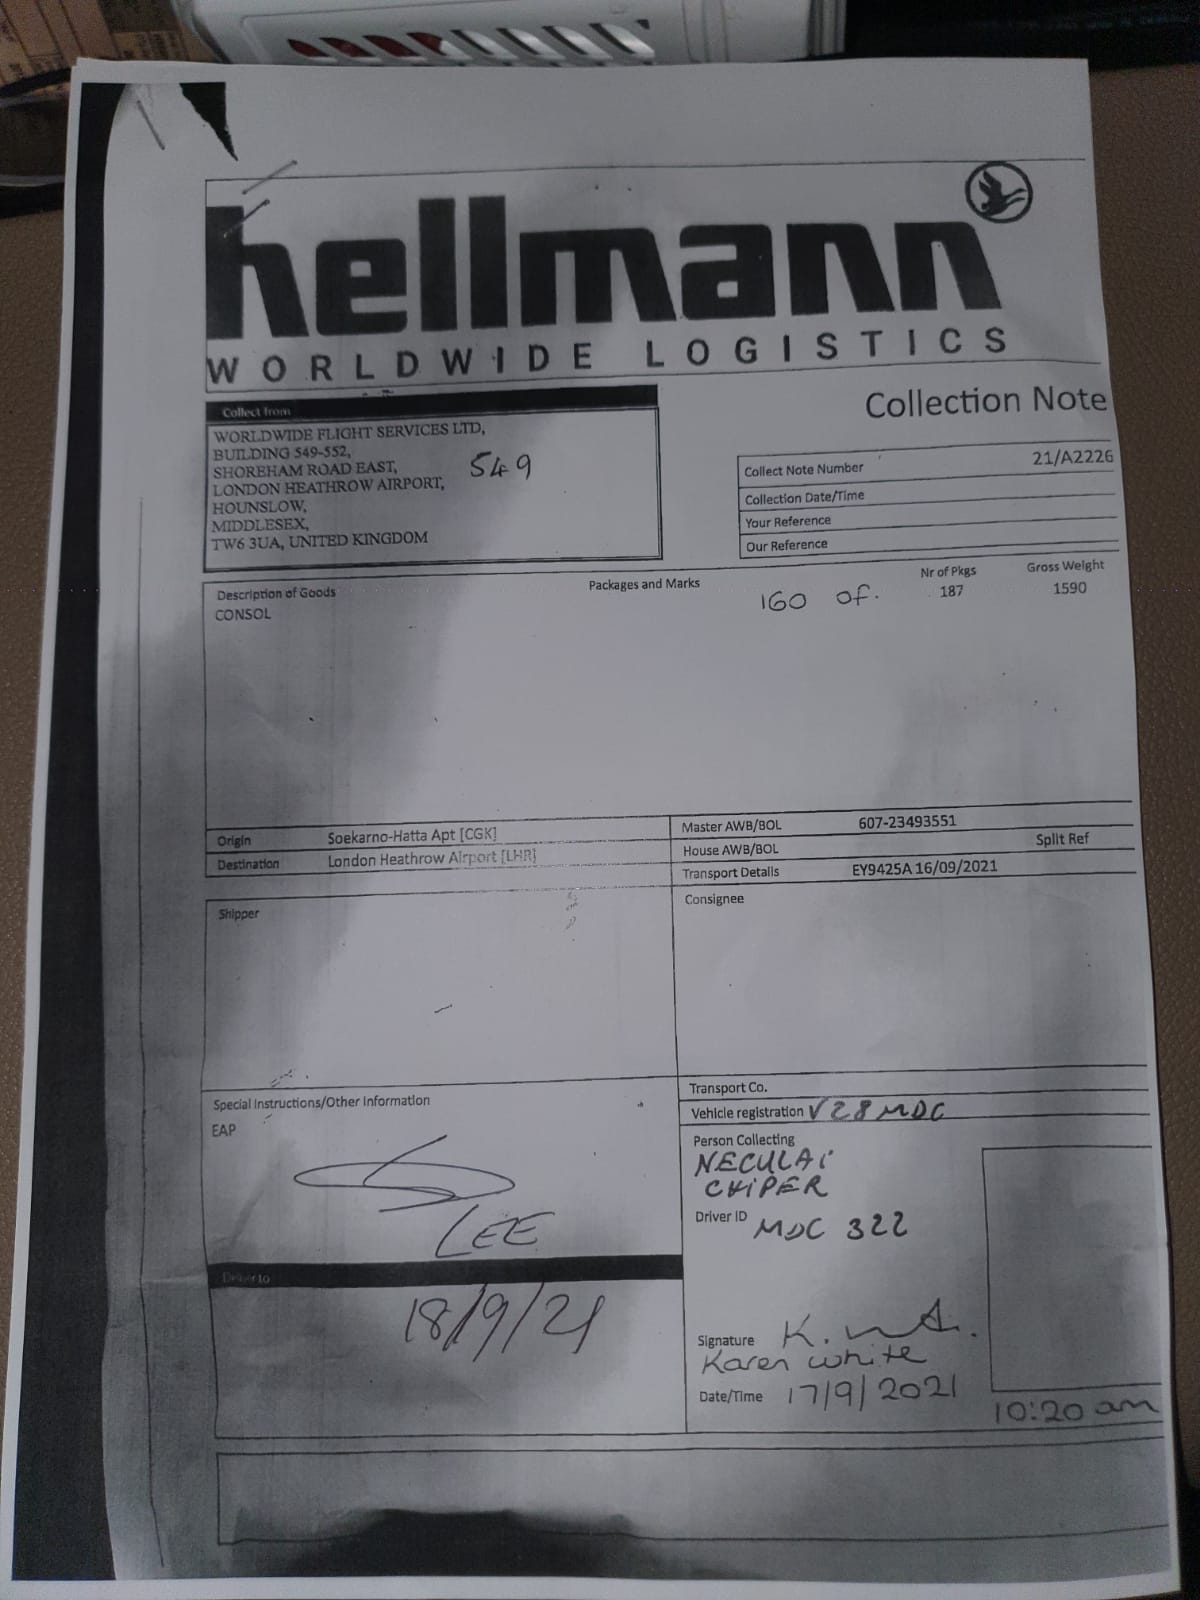 hellmann
WORLDWIDE LOGISTICS
Collection Note
Collect from
WORLDWIDE FLIGHT SERVICES LTD,
BUILDING 549-552,
SHOREHAM ROAD EAST,
549
LONDON HEATHROW AIRPORT,
HOUNSLOW,
MIDDLESEX,
TW6 3UA, UNITED KINGDOM
Collect Note Number 21/A2226
Collection Date/Time
Your Reference
Our Reference
Description of Goods Packages and Marks Nr of Pkgs Gross Weight
CONSOL 160 of. 187 1590
Origin Soekarno-Hatta Apt [CGK]
Destination London Heathrow Airport [LHR]
Master AWB/BOL 607-23493551
House AWB/BOL Split Ref
Transport Details EY9425A 16/09/2021
Shipper
Consignee
Special Instructions/Other Information
EAP
LEE
Transport Co.
Vehicle registration V28MDC
Person Collecting
NECULAI
CHIPER
Driver ID MDC 322
Deliver to
18/9/21
Signature K.
Karen White
Date/Time 17/9/2021
10:20 am